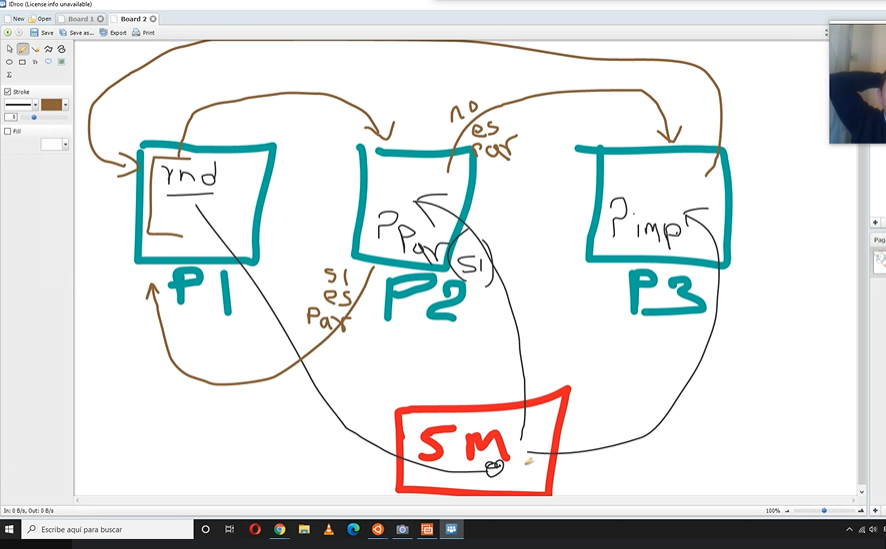 IDroo (License info unavailable)
New Open Board 1 Board 2
Save Save as... Export Print
Stroke
1
Fill
no
es
Par
rnd
PPar
(SI)
Pimp
P1
P2
P3
SI
es
Par
SM
Pag
In: 0 B/s, Out: 0 B/s
100%
Escribe aquí para buscar